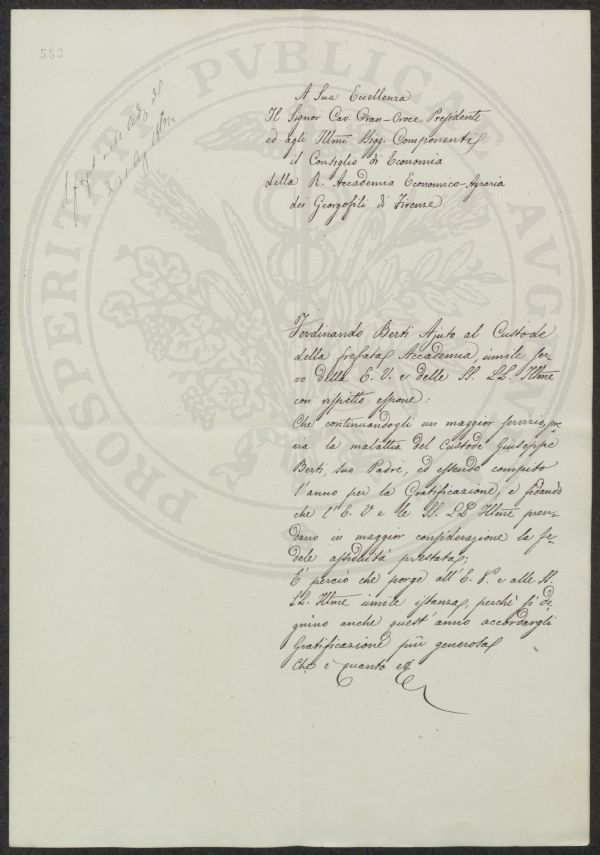 583
A Sua Eccellenza
Il Signor Cav. Gran-Croce Presidente
ed agli Illmi Sigg. Componenti
il Consiglio di Economia
della R. Accademia Economico-Agraria
dei Georgofili di Firenze
Ferdinando Berti Ajuto al Custode
della prefata Accademia, umile ser-
vo della E. V. e delle SS. LL. Illme
con rispetto espone:
Che continuandogli un maggior servizio,
la malattia del Custode Giuseppe
Berti, suo Padre, ed essendo compito
l'anno per la Gratificazione, e fidando
che l'E. V e le SS. LL Illme pren-
dano in maggior considerazione la fe-
dele assiduità prestata;
E' perciò che porge all'E. V. e alle SS.
LL. Illme umile istanza, perchè si de-
gnino anche quest'anno accordargli
Gratificazione più generosa
Che è quanto
PROSPERITATI PVBLICAE AVG